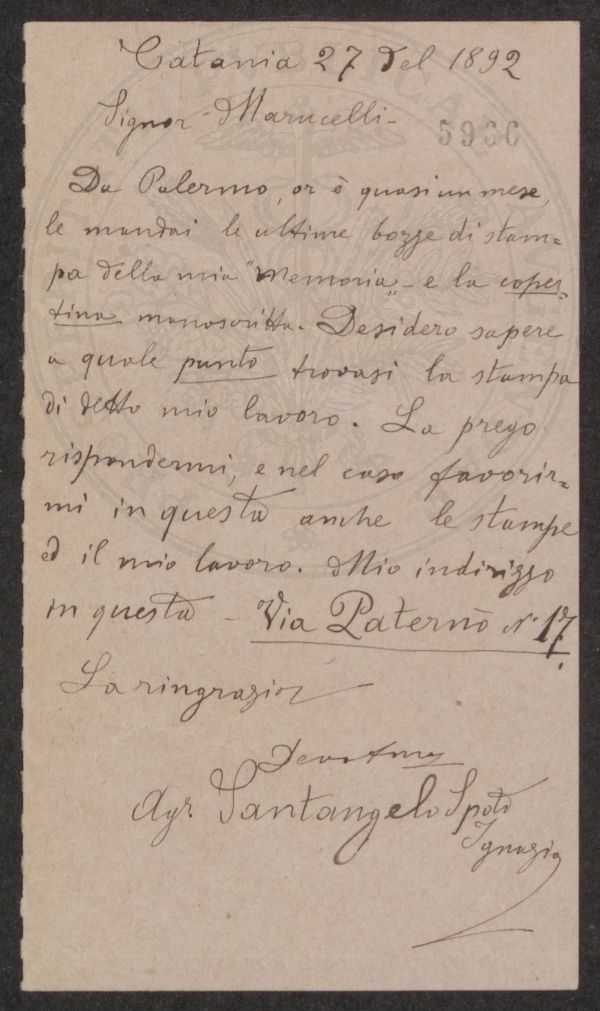 Catania 27 del 1892
Signor Marucelli -
5966
Da Palermo, or è quasi un mese,
le mandai le ultime bozze di stam=
pa della mia "Memoria" - e la coper-
tina manoscritta. Desidero sapere
a quale punto trovasi la stampa
di detto mio lavoro. La prego
rispondermi, e nel caso favorir=
mi in questa anche le stampe
ed il mio lavoro. Mio indirizzo
in questa - Via Paternò N° 17.
La ringrazio
Devotmo
Agr. Santangelo Spoto
Ignazio